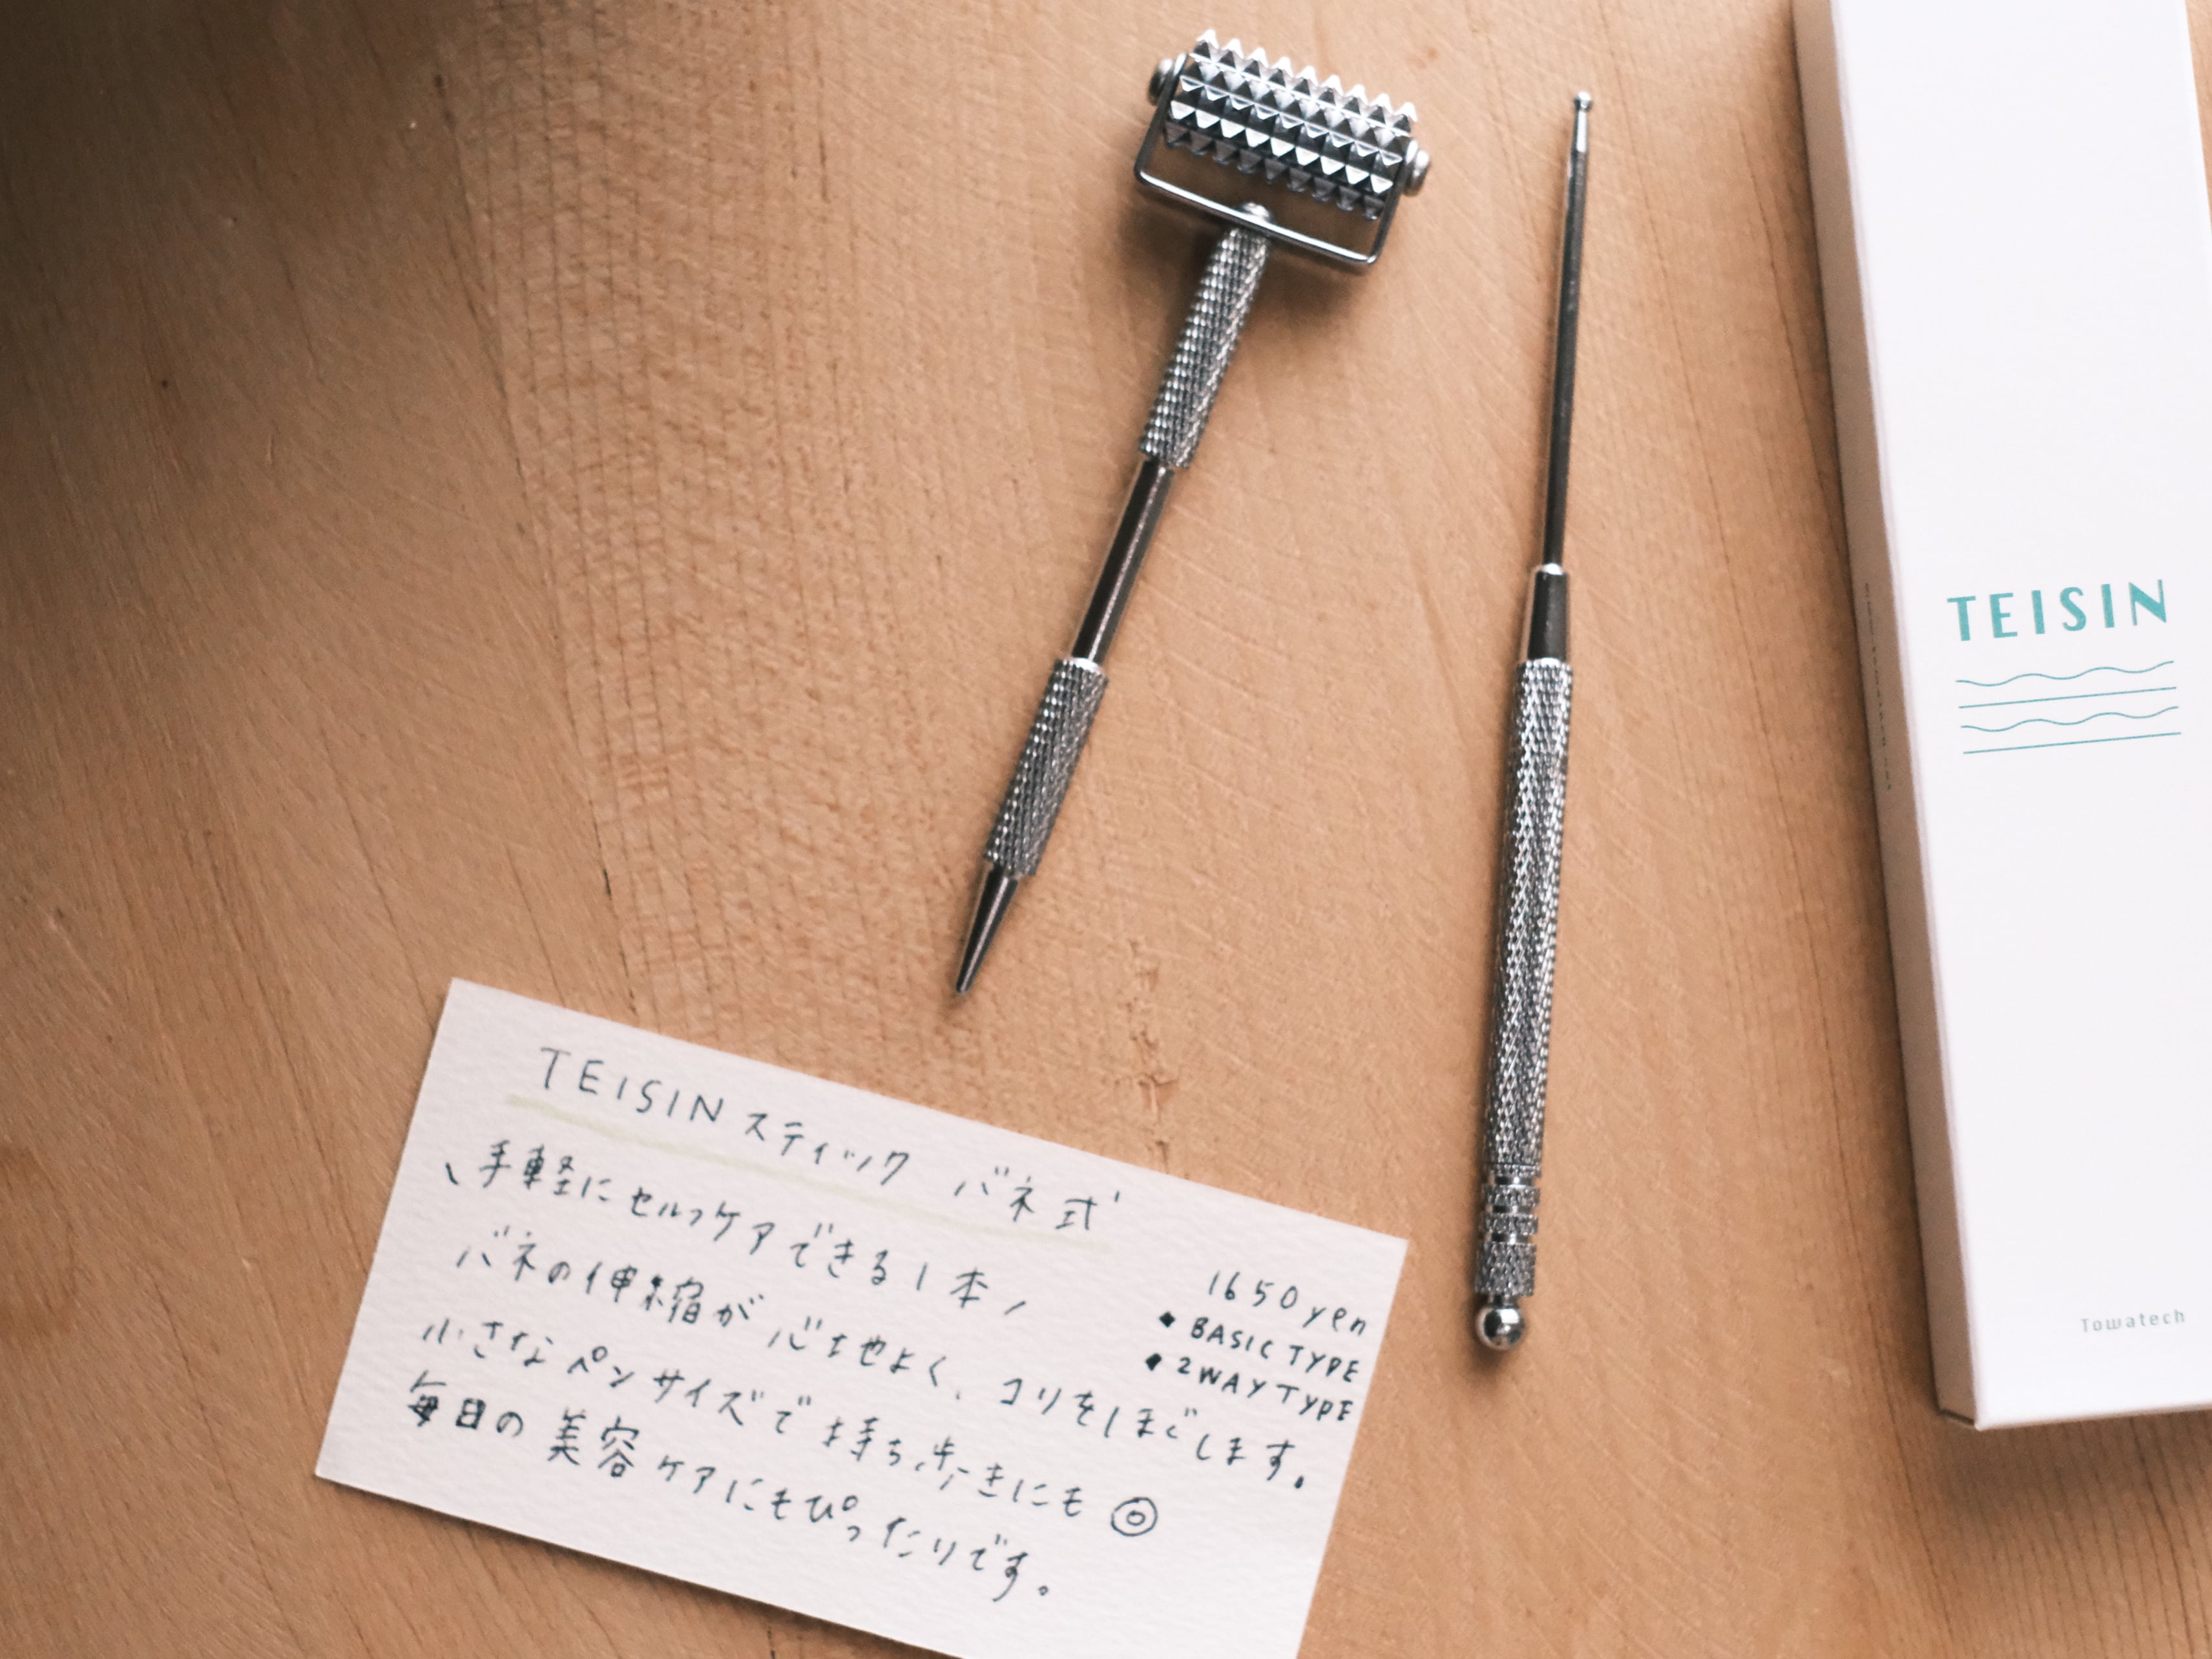 TEISIN
Towatech
TEISIN スティック バネ式
\ 手軽にセルフケアできる1本 /
バネの伸縮が心地よく、コリをほぐします。
小さなペンサイズで持ち歩きにも◎
毎日の美容ケアにもぴったりです。
1650yen
◆ BASIC TYPE
◆ 2WAY TYPE